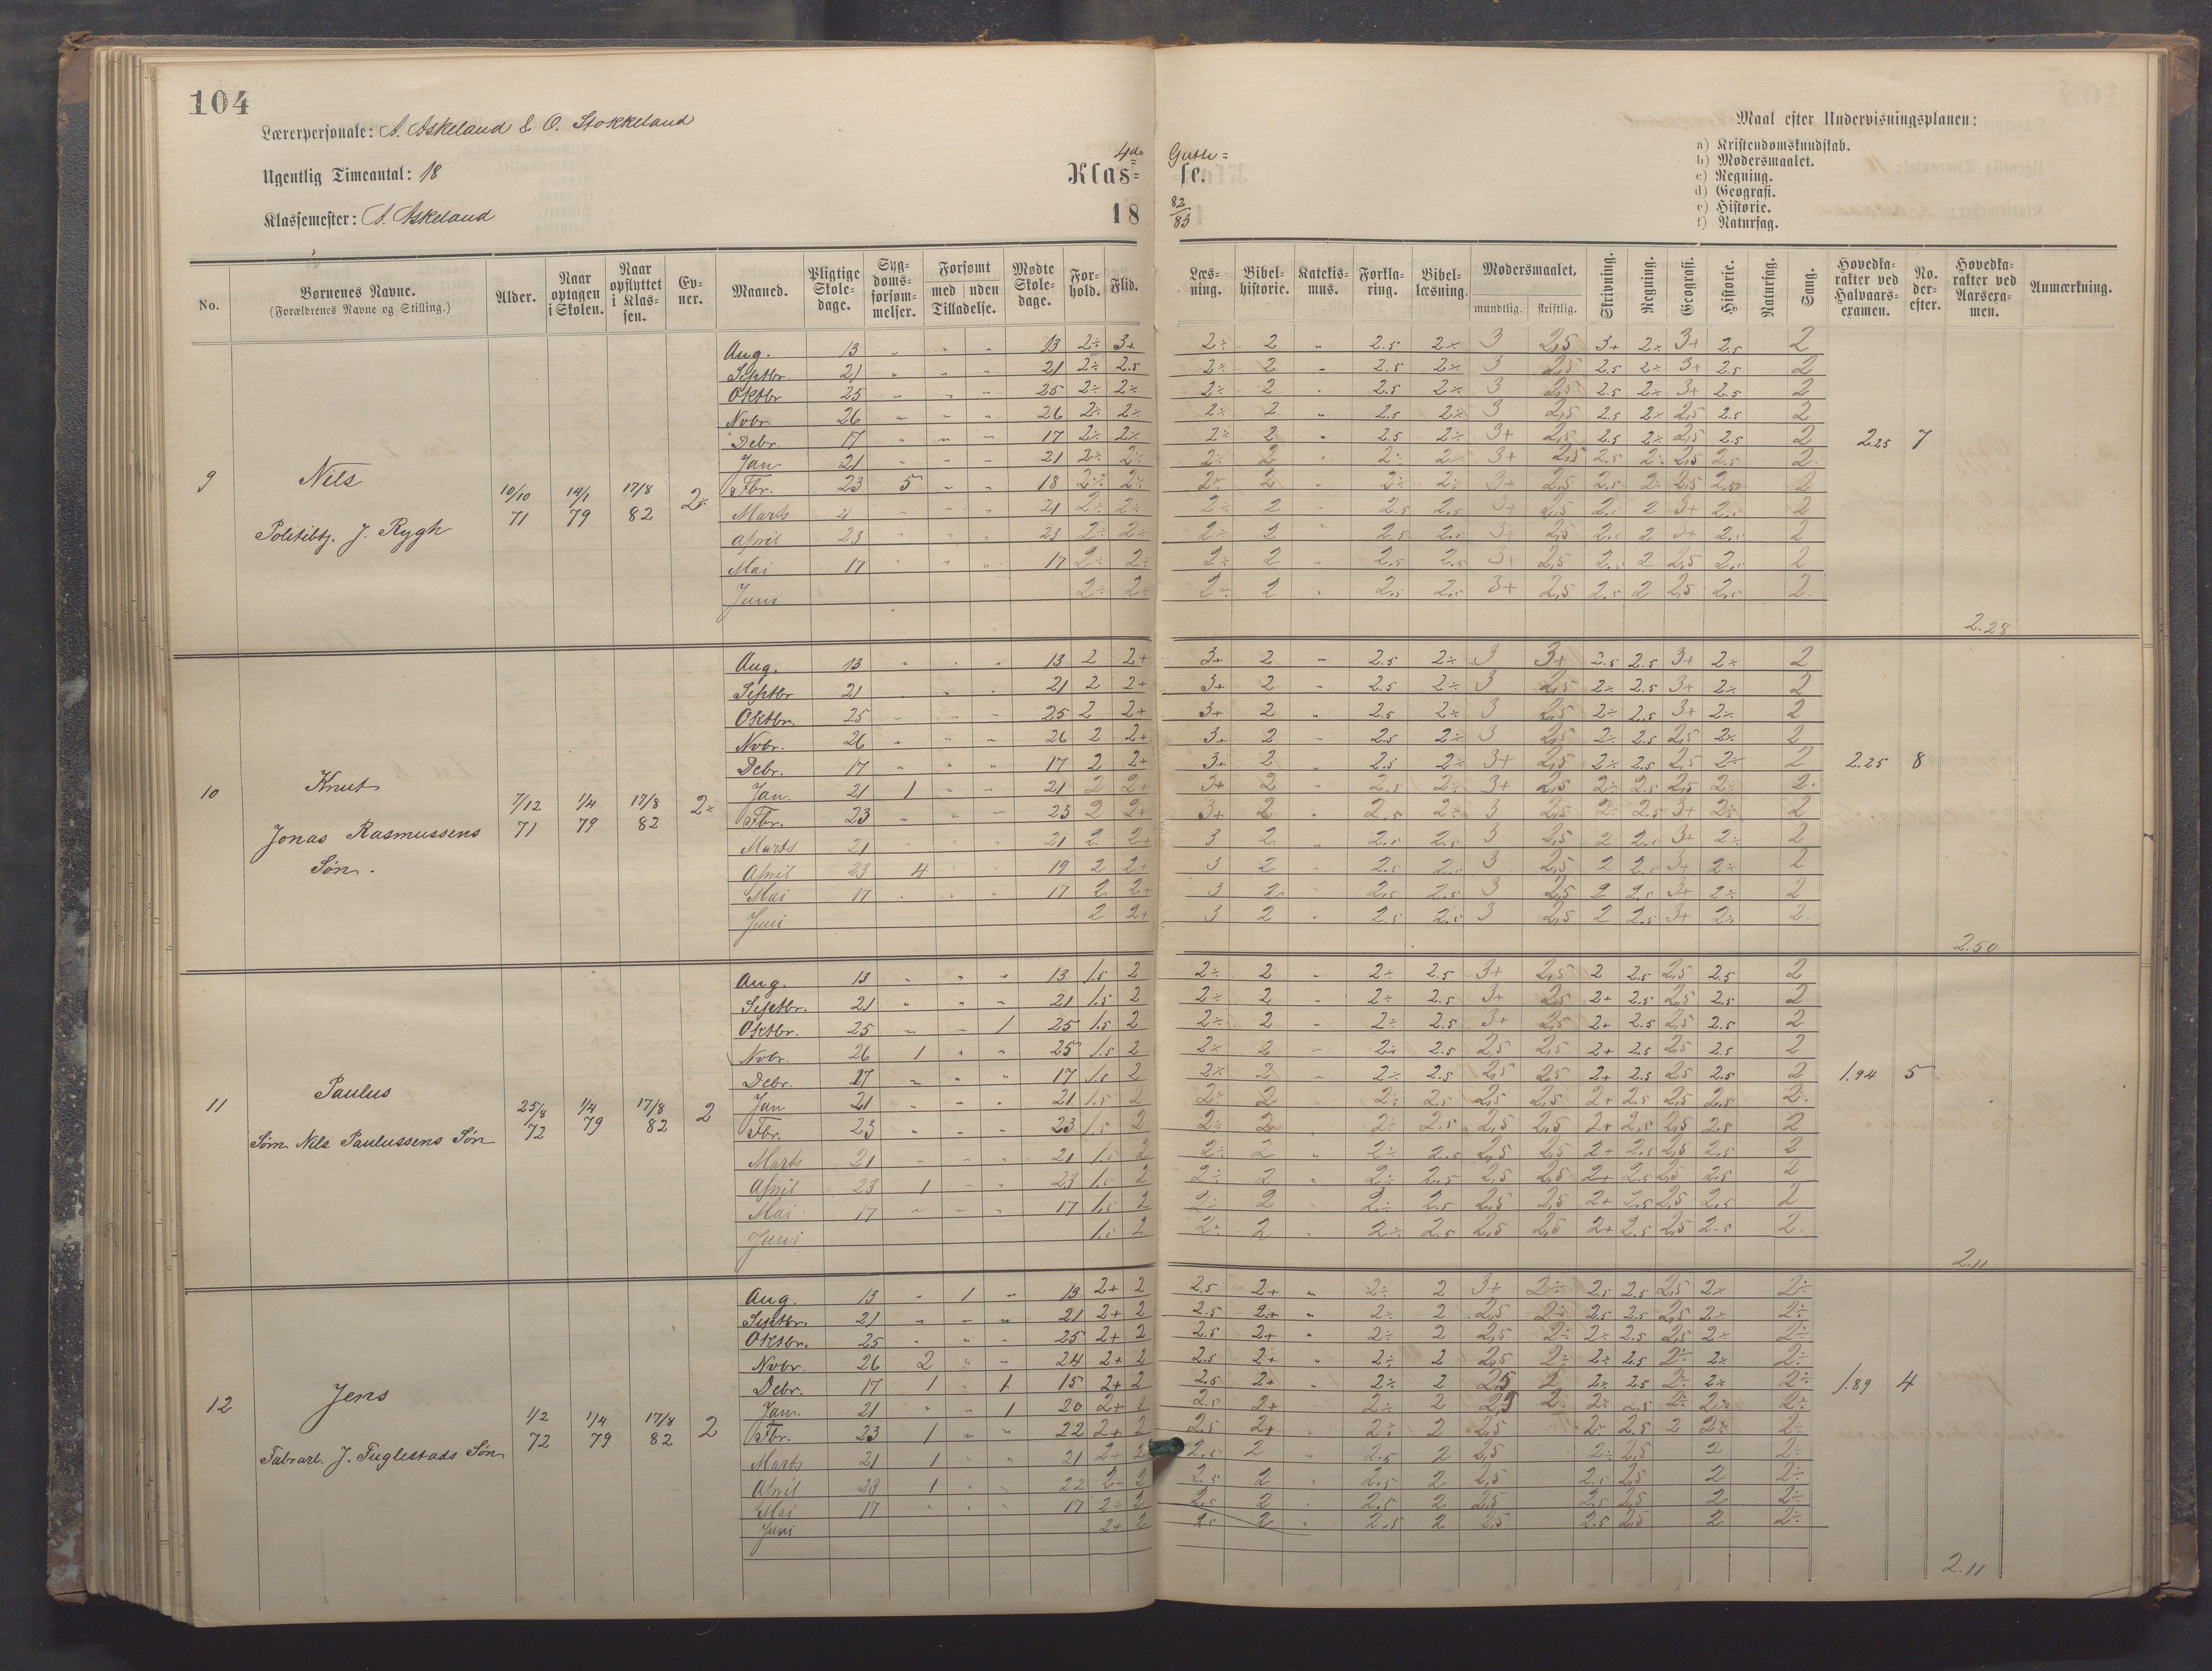 104
Lærerpersonale: A. Askeland & O. Stokkeland
Ugentlig Timeantal: 18
Klassemester: A. Askeland
4de Gutte=
Klas= se.
18 82/83
Maal efter Undervisningsplanen:
a) Kristendomskundskab.
b) Modersmaalet.
c) Regning.
d) Geografi.
e) Historie.
f) Naturfag.
No. | Børnenes Navne. (Forældrenes Navne og Stilling.) | Alder. | Naar optagen i Skolen. | Naar opflyttet i Klassen. | Evner. | Maaned. | Pligtige Skoledage. | Sygdomsforsømmelser. | Forsømt med uden Tilladelse. | Mødte Skoledage. | Forhold. | Flid. | Læsning. | Bibelhistorie. | Katekismus. | Forklaring. | Bibellæsning. | Modersmaalet, mundtlig. skriftlig. | Skrivning. | Regning. | Geografi. | Historie. | Naturfag. | Sang. | Hovedkarakter ved Halvaarsexamen. | No. derefter. | Hovedkarakter ved Aarsexamen. | Anmærkning.
9 Nils
Politibtj. J. Rygh
10/10 71 14/1 79 17/8 82 2÷
Aug. 13 " " " 13 2÷ 3+ 2÷ 2 " 2.5 2÷ 3 2,5 3+ 2÷ 3+ 2.5 2
Septbr. 21 " " " 21 2÷ 2.5 2÷ 2 " 2.5 2÷ 3 2,5 2.5 2÷ 3+ 2.5 2
Oktbr 25 " " " 25 2÷ 2÷ 2÷ 2 " 2.5 2÷ 3 2,5 2.5 2÷ 3+ 2.5 2
Novbr. 26 " " " 26 2÷ 2÷ 2÷ 2 " 2.5 2÷ 3 2,5 2.5 2÷ 2,5 2.5 2
Debr. 17 " " " 17 2÷ 2÷ 2÷ 2 " 2.5 2÷ 3+ 2,5 2.5 2÷ 2,5 2.5 2 2.25 7
Jan 21 " " " 21 2÷ 2÷ 2÷ 2 " 2÷ 2÷ 3+ 2,5 2.5 2÷ 2,5 2.5 2
Fbr. 23 5 " " 18 2÷ 2÷ 2÷ 2 " 2÷ 2÷ 3+ 2,5 2.5 2÷ 2,5 2.5 2
Marts 21 " " " 21 2÷ 2÷ 2÷ 2 " 2.5 2.5 3+ 2,5 2.5 2 3+ 2.5 2
April 23 " " " 23 2÷ 2÷ 2÷ 2 " 2.5 2.5 3+ 2,5 2.5 2 3+ 2.5 2
Mai 17 " " " 17 2÷ 2÷ 2÷ 2 " 2.5 2.5 3+ 2,5 2.5 2 2,5 2.5 2
Juni 2÷ 2÷ 2÷ 2 " 2.5 2.5 3+ 2,5 2.5 2 2,5 2.5 2
2.28
10 Knut
Jonas Rasmussens
Søn.
7/12 71 1/4 79 17/8 82 2÷
Aug. 13 " " " 13 2 2+ 3+ 2 " 2.5 2÷ 3 3+ 2.5 2.5 3+ 2÷ 2
Septbr 21 " " " 21 2 2+ 3+ 2 " 2.5 2÷ 3 2,5 2÷ 2.5 3+ 2÷ 2
Oktbr. 25 " " " 25 2 2+ 3+ 2 " 2.5 2÷ 3 2,5 2÷ 2.5 3+ 2÷ 2
Novbr. 26 " " " 26 2 2+ 3+ 2 " 2.5 2÷ 3 2,5 2÷ 2.5 2,5 2÷ 2
Debr. 17 " " " 17 2 2+ 3+ 2 " 2.5 2÷ 3+ 2,5 2÷ 2.5 2,5 2÷ 2 2.25 8
Jan. 21 1 " " 21 2 2+ 3+ 2 " 2.5 2÷ 3+ 2,5 2÷ 2.5 2,5 2÷ 2
Fbr. 23 " " " 23 2 2+ 3+ 2 " 2.5 2÷ 3 2,5 2÷ 2.5 3+ 2÷ 2
Marts 21 " " " 21 2 2+ 3 2 " 2.5 2.5 3 2,5 2 2.5 3+ 2÷ 2
April 23 4 " " 19 2 2+ 3 2 " 2.5 2.5 3 2,5 2 2.5 3+ 2÷ 2
Mai 17 " " " 17 2 2+ 3 2 " 2.5 2.5 3 2,5 2 2.5 3+ 2÷ 2
Juni 2 2+ 3 2 " 2.5 2.5 3 2,5 2 2.5 3+ 2÷ 2
2.50
11 Paulus
Søm. Nils Paulussens Søn
25/8 72 1/4 79 17/8 82 2
Aug. 13 " " " 13 1.5 2 2÷ 2 " 2÷ 2.5 3+ 2,5 2 2.5 2,5 2.5 2
Septbr. 21 " " " 21 1.5 2 2÷ 2 " 2÷ 2.5 3+ 2,5 2+ 2.5 2,5 2.5 2
Oktbr. 25 " " 1 25 1.5 2 2÷ 2 " 2÷ 2.5 3+ 2,5 2+ 2.5 2,5 2.5 2
Novbr. 26 1 " " 25 1.5 2 2÷ 2 " 2÷ 2.5 2,5 2,5 2+ 2.5 2,5 2.5 2
Debr. 17 " " " 17 1.5 2 2÷ 2 " 2÷ 2.5 2,5 2,5 2+ 2.5 2,5 2.5 2 1.94 5
Jan 21 " " " 21 1.5 2 2÷ 2 " 2÷ 2.5 2,5 2,5 2+ 2.5 2,5 2.5 2
Fbr. 23 " " " 23 1.5 2 2÷ 2 " 2÷ 2.5 2,5 2,5 2+ 2.5 2,5 2.5 2
Marts 21 " " " 21 1.5 2 2÷ 2 " 2÷ 2.5 2,5 2,5 2+ 2.5 2,5 2.5 2
April 23 1 " " 23 1.5 2 2÷ 2 " 2÷ 2.5 2,5 2,5 2+ 2.5 2,5 2.5 2
Mai 17 " " " 17 1.5 2 2÷ 2 " 2÷ 2.5 2,5 2,5 2+ 2.5 2,5 2.5 2
Juni 1.5 2 2÷ 2 " 2÷ 2.5 2,5 2,5 2+ 2.5 2,5 2.5 2
2.11
12 Jens
Fabrarb. J. Fuglestads Søn
1/2 72 1/4 79 17/8 82 2
Aug. 13 " 1 " 13 2+ 2 2.5 2+ " 2÷ 2 3+ 2÷ 2.5 2.5 2,5 2÷ 2÷
Septbr. 21 " " " 21 2+ 2 2.5 2+ " 2÷ 2 2,5 2÷ 2.5 2.5 2,5 2÷ 2÷
Oktbr. 25 " " " 25 2+ 2 2.5 2+ " 2÷ 2 2,5 2÷ 2÷ 2.5 2,5 2÷ 2÷
Novbr. 26 2 " " 24 2+ 2 2.5 2+ " 2÷ 2 2,5 2÷ 2÷ 2.5 2÷ 2÷ 2÷
Debr. 17 1 " 1 15 2+ 2 2.5 2+ " 2÷ 2 2,5 2 2÷ 2.5 2÷ 2÷ 2÷ 1.89 4
Jan. 21 " " 1 20 2+ 2 2.5 2+ " 2÷ 2 2,5 2 2÷ 2.5 2÷ 2÷ 2÷
Fbr. 23 1 " " 22 2+ 2 2.5 2+ " 2÷ 2 2,5 2÷ 2.5 2 2÷ 2÷
Marts 21 1 " " 21 2+ 2 2.5 2 " 2.5 2 2,5 2÷ 2,5 2 2÷
April 23 1 " " 22 2+ 2 2.5 2 " 2.5 2 2,5 2.5 2,5 2 2÷
Mai 17 " " " 17 2+ 2 2.5 2 " 2.5 2 2,5 2.5 2,5 2 2÷
Juni 2+ 2 2.5 2 " 2.5 2 2,5 2.5 2,5 2 2÷
2.11